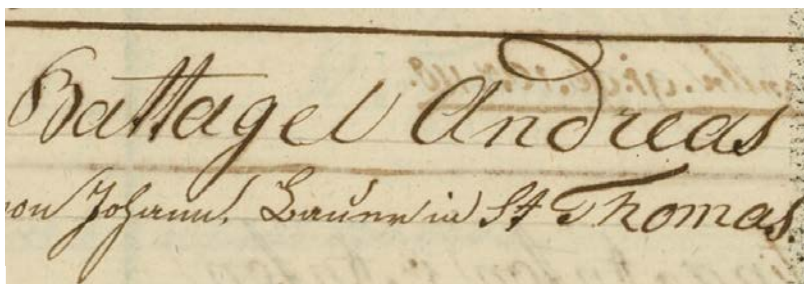 Battagel Andreas
von Johann, Bauer in St Thomas